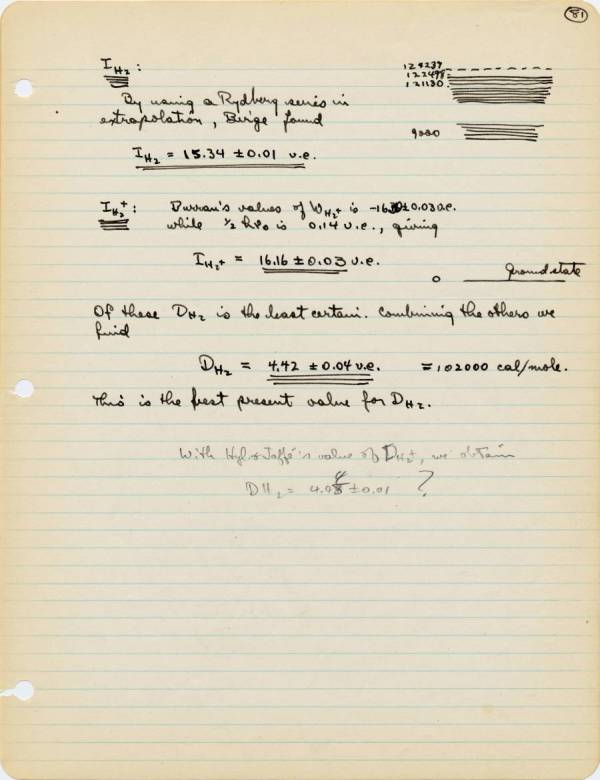 81
I H2 :
By using a Rydberg series in
extrapolation, Birge found
I H2 = 15.34 ± 0.01 v.e.
122498
121130
9000
I H2+ : Burrau's values of W H2+ is ±0.03 v.e.
while ½ hν0 is 0.14 v.e., giving
I H2+ = 16.16 ± 0.03 v.e.
0 Ground state
Of these D H2 is the least certain. Combining the others we
find
D H2 = 4.42 ± 0.04 v.e. = 102000 cal/mole.
This is the best present value for D H2.
With value of D H2+, we obtain
D H2 = ± 0.01 ?